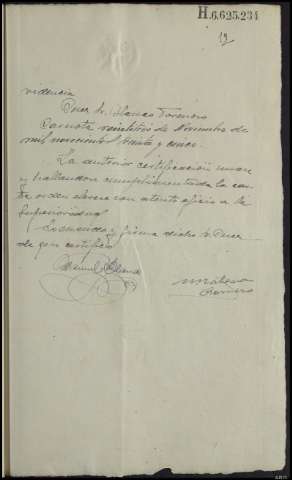 H.6.625.234
19
videncia
Juez Sr. Blanco Torreiro
Carnota veintitrés de Noviembre de
mil novecientos treinta y cinco.
La anterior certificación unase
y hallandose cumplimentada la car-
ta orden elevese con atento oficio a la
Superioridad
Lo mandó y firma dicho Sr. Juez
de que certifico
Manuel Blanco